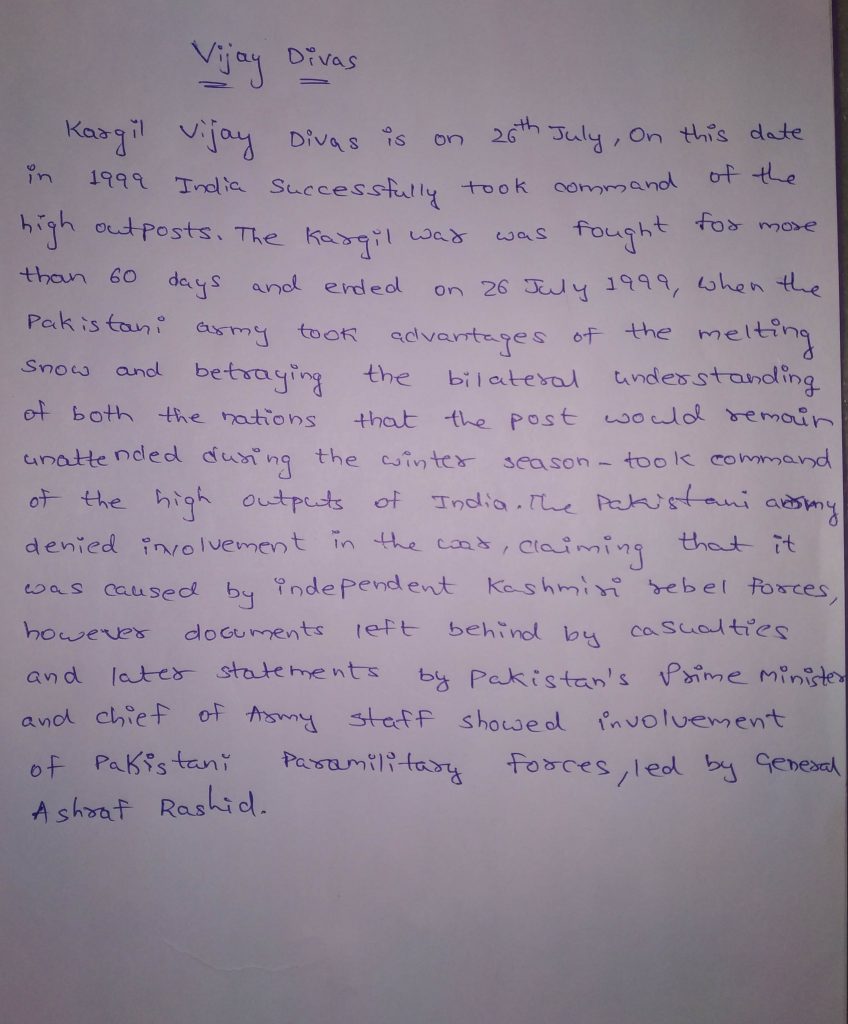 Vijay Divas
Kargil Vijay Divas is on 26th July, On this date
in 1999 India Successfully took command of the
high outposts. The Kargil war was fought for more
than 60 days and ended on 26 July 1999, when the
Pakistani army took advantages of the melting
snow and betraying the bilateral understanding
of both the nations that the post would remain
unattended during the winter season - took command
of the high outputs of India. The Pakistani army
denied involvement in the war, claiming that it
was caused by independent Kashmiri rebel forces,
however documents left behind by casualties
and later statements by Pakistan's Prime Minister
and chief of Army staff showed involvement
of Pakistani Paramilitary forces, led by General
Ashraf Rashid.